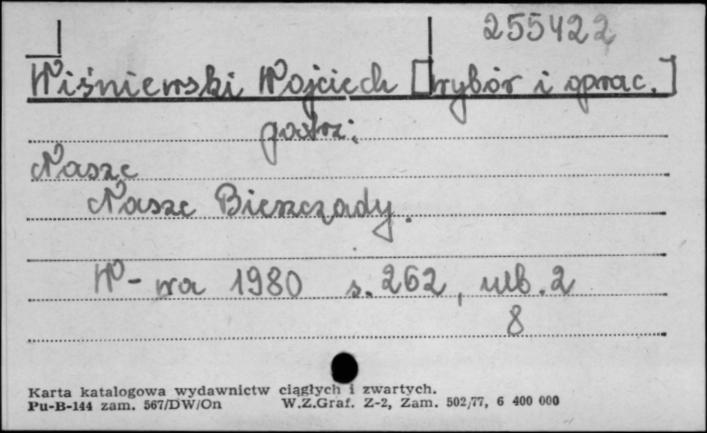 255422
Wiśniewski Wojciech [wybór i oprac.]
patrz:
Nasze
Nasze Bieszczady.
W-wa 1980 s. 262, nlb. 2
8
Karta katalogowa wydawnictw ciągłych i zwartych.
Pu-B-144 zam. 567/DW/On W.Z.Graf. Z-2, Zam. 502/77, 6 400 000